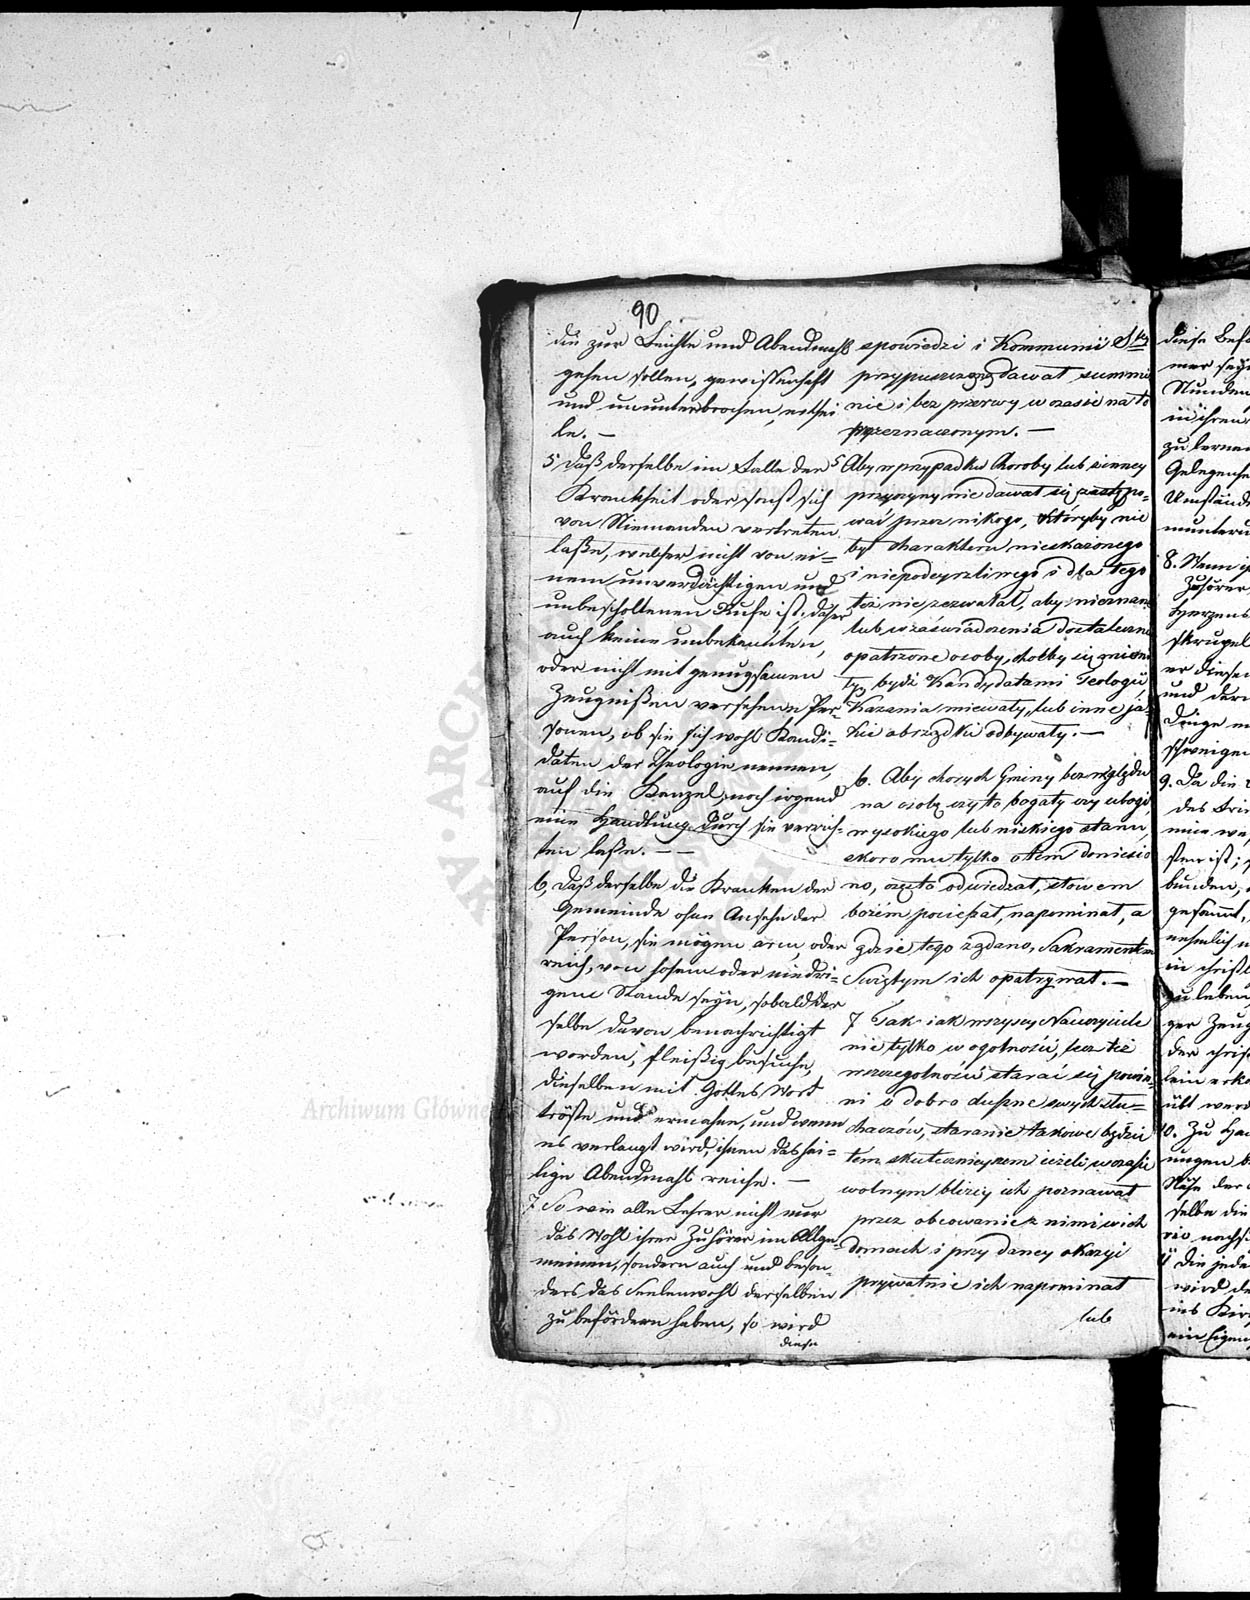 90
die zur Beichte und Abendmahl
gehen sollen, gewissenhaft
und ununterbrochen, ertei
le. —
5 daß derselbe im Falle der
Krankheit oder sonst sich
von Niemanden vertreten
laße, welcher nicht von ei=
nem unverdächtigen und
unbescholtenen Rufe ist, daher
auch keine unbekannten,
oder nicht mit genugsamen
Zeugnißen versehene Per=
sonen, ob sie sich wohl Kandi=
daten der Theologie nennen,
auf die Kanzel, noch irgend
eine Handlung durch sie verrich=
ten laße. — —
6, daß derselbe die Kranken der
Gemeinde ohne Ansehn der
Person, sie mögen arm, oder
reich, von hohem oder niedri=
gem Stande seyn, sobald der
selbe davon benachrichtigt
worden, fleißig besuche,
dieselben mit Gottes Wort
tröste und ermahne, und wenn
es verlangt wird, ihnen das hei=
lige Abendmahl reiche. —
7 So wie alle Lehrer nicht nur
das Wohl ihrer Zuhörer im Allge=
meinen, sondern auch und beson=
ders das Seelenwohl derselben
zu befördern haben, so wird
diese
spowiedzi i Kommunii
przypuszczać dawał summi
nie i bez przerwy w czasie na to
przeznaczonym. —
5 Aby w przypadku Choroby lub inney
przyczyny nie dawał się zastępo=
wać przez nikogo, któryby nie
był charakteru nieskażonego
i niepodeyrzliwego i dla tego
też nie zezwalał, aby nieznane
lub w zaświadczenia dostateczne
opatrzone osoby, choćby się mieni
ły bydź Kandydatami Teologii,
Kazania miewały, lub inne ja=
kie obrządki odbywały. —
6. Aby chorych Gminy bez względu
na osobę czy to bogaty czy ubogi,
wysokiego lub niskiego stanu,
skoro mu tylko o tem doniesio
no, często odwiedzał, słowem
bożem pocieszał, napominał, a
gdzie tego żądano, Sakramentem
Swiętym ich opatrywał. —
7 Tak iak wszyscy Nauczyciele
nie tylko w ogolności, lecz też
w szczegolności starać się powin=
ni o dobro duszne swych słu=
chaczów, staranie takowe będzie
tem skutecznieyszem ieżeli w czasie
wolnym bliżey ich poznawał
przez obcowanie z nimi w ich
domach i przy daney okazyi
prywatnie ich napominał
lub
diese
mer seyn
Stunden
in ihren
zu lernen
Gelegenhe
Umstände
munteru
8. Wenn
Zuhörer
Herzens
skrupel
er diesen
und der
Dinge
schweigen
9. Da die
des
stum ist;
bunden,
gesamt,
nehmlich
in christ
zu leben
ger Zeug
der christ
übt werd
10. Zu
ungen
Nähe der
selbe die
11 die jede
wird
ins Kir
ein Eigen
Archiwum Główne